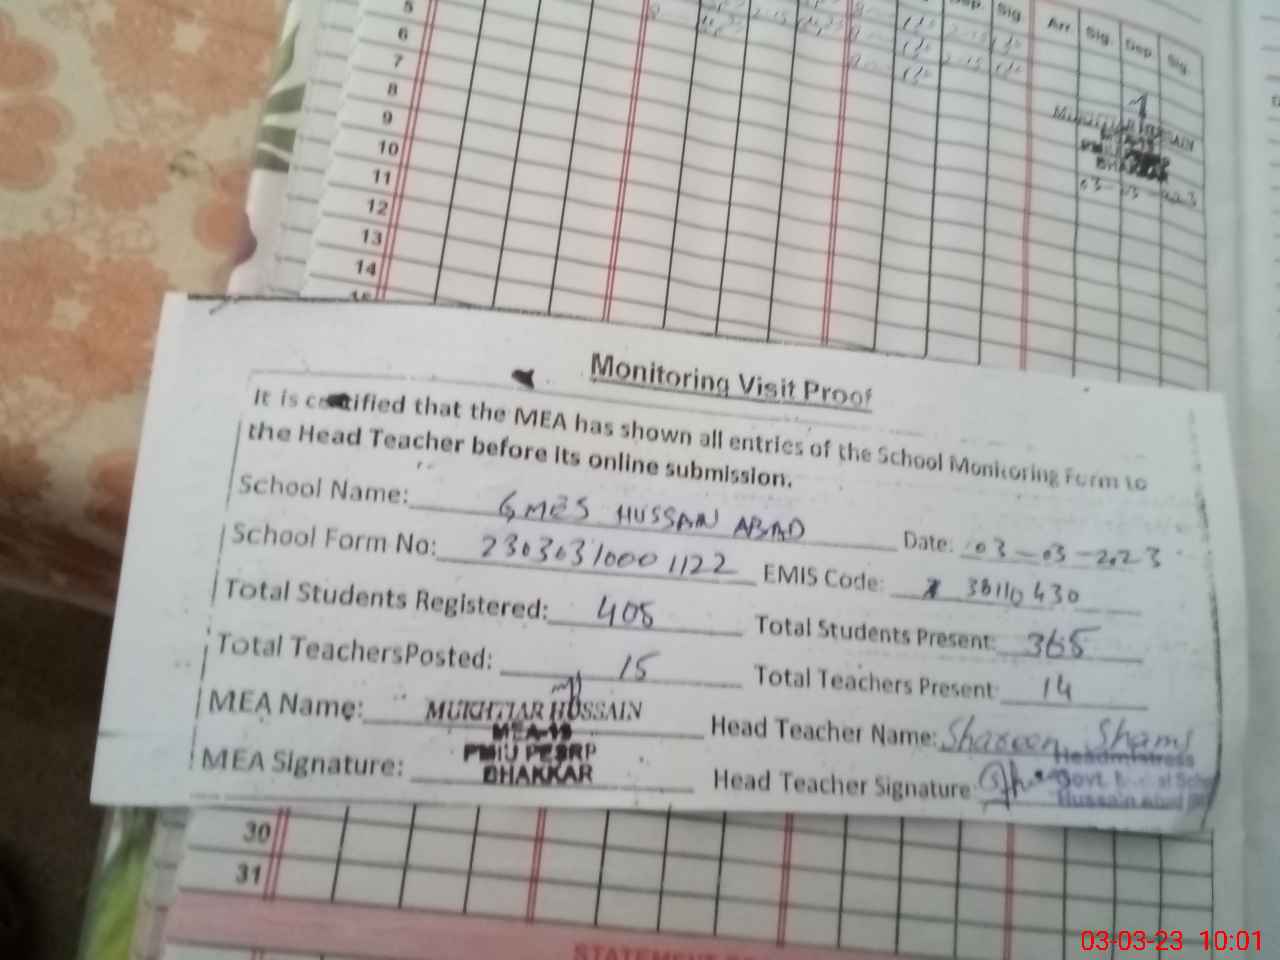 5
6
7
8
9
10
11
12
13
14
Sig Arr Sig. Dep. Sig.
MUKHTIAR HUSSAIN
BHAKKAR
03-03-2023
Monitoring Visit Proof
It is certified that the MEA has shown all entries of the School Monitoring Form to
the Head Teacher before its online submission.
School Name: GMES HUSSAIN ABAD Date: 03-03-2023
School Form No: 23030310001122 EMIS Code: 38110430
Total Students Registered: 408 Total Students Present: 365
Total TeachersPosted: 15 Total Teachers Present: 14
MEA Name: MUKHTIAR HUSSAIN Head Teacher Name: Shareen Shams
MEA-19
PMIU PESRP
MEA Signature: BHAKKAR Head Teacher Signature
Headmistress
Govt.
Hussain Abad
30
31
STATEMENT
03-03-23 10:01